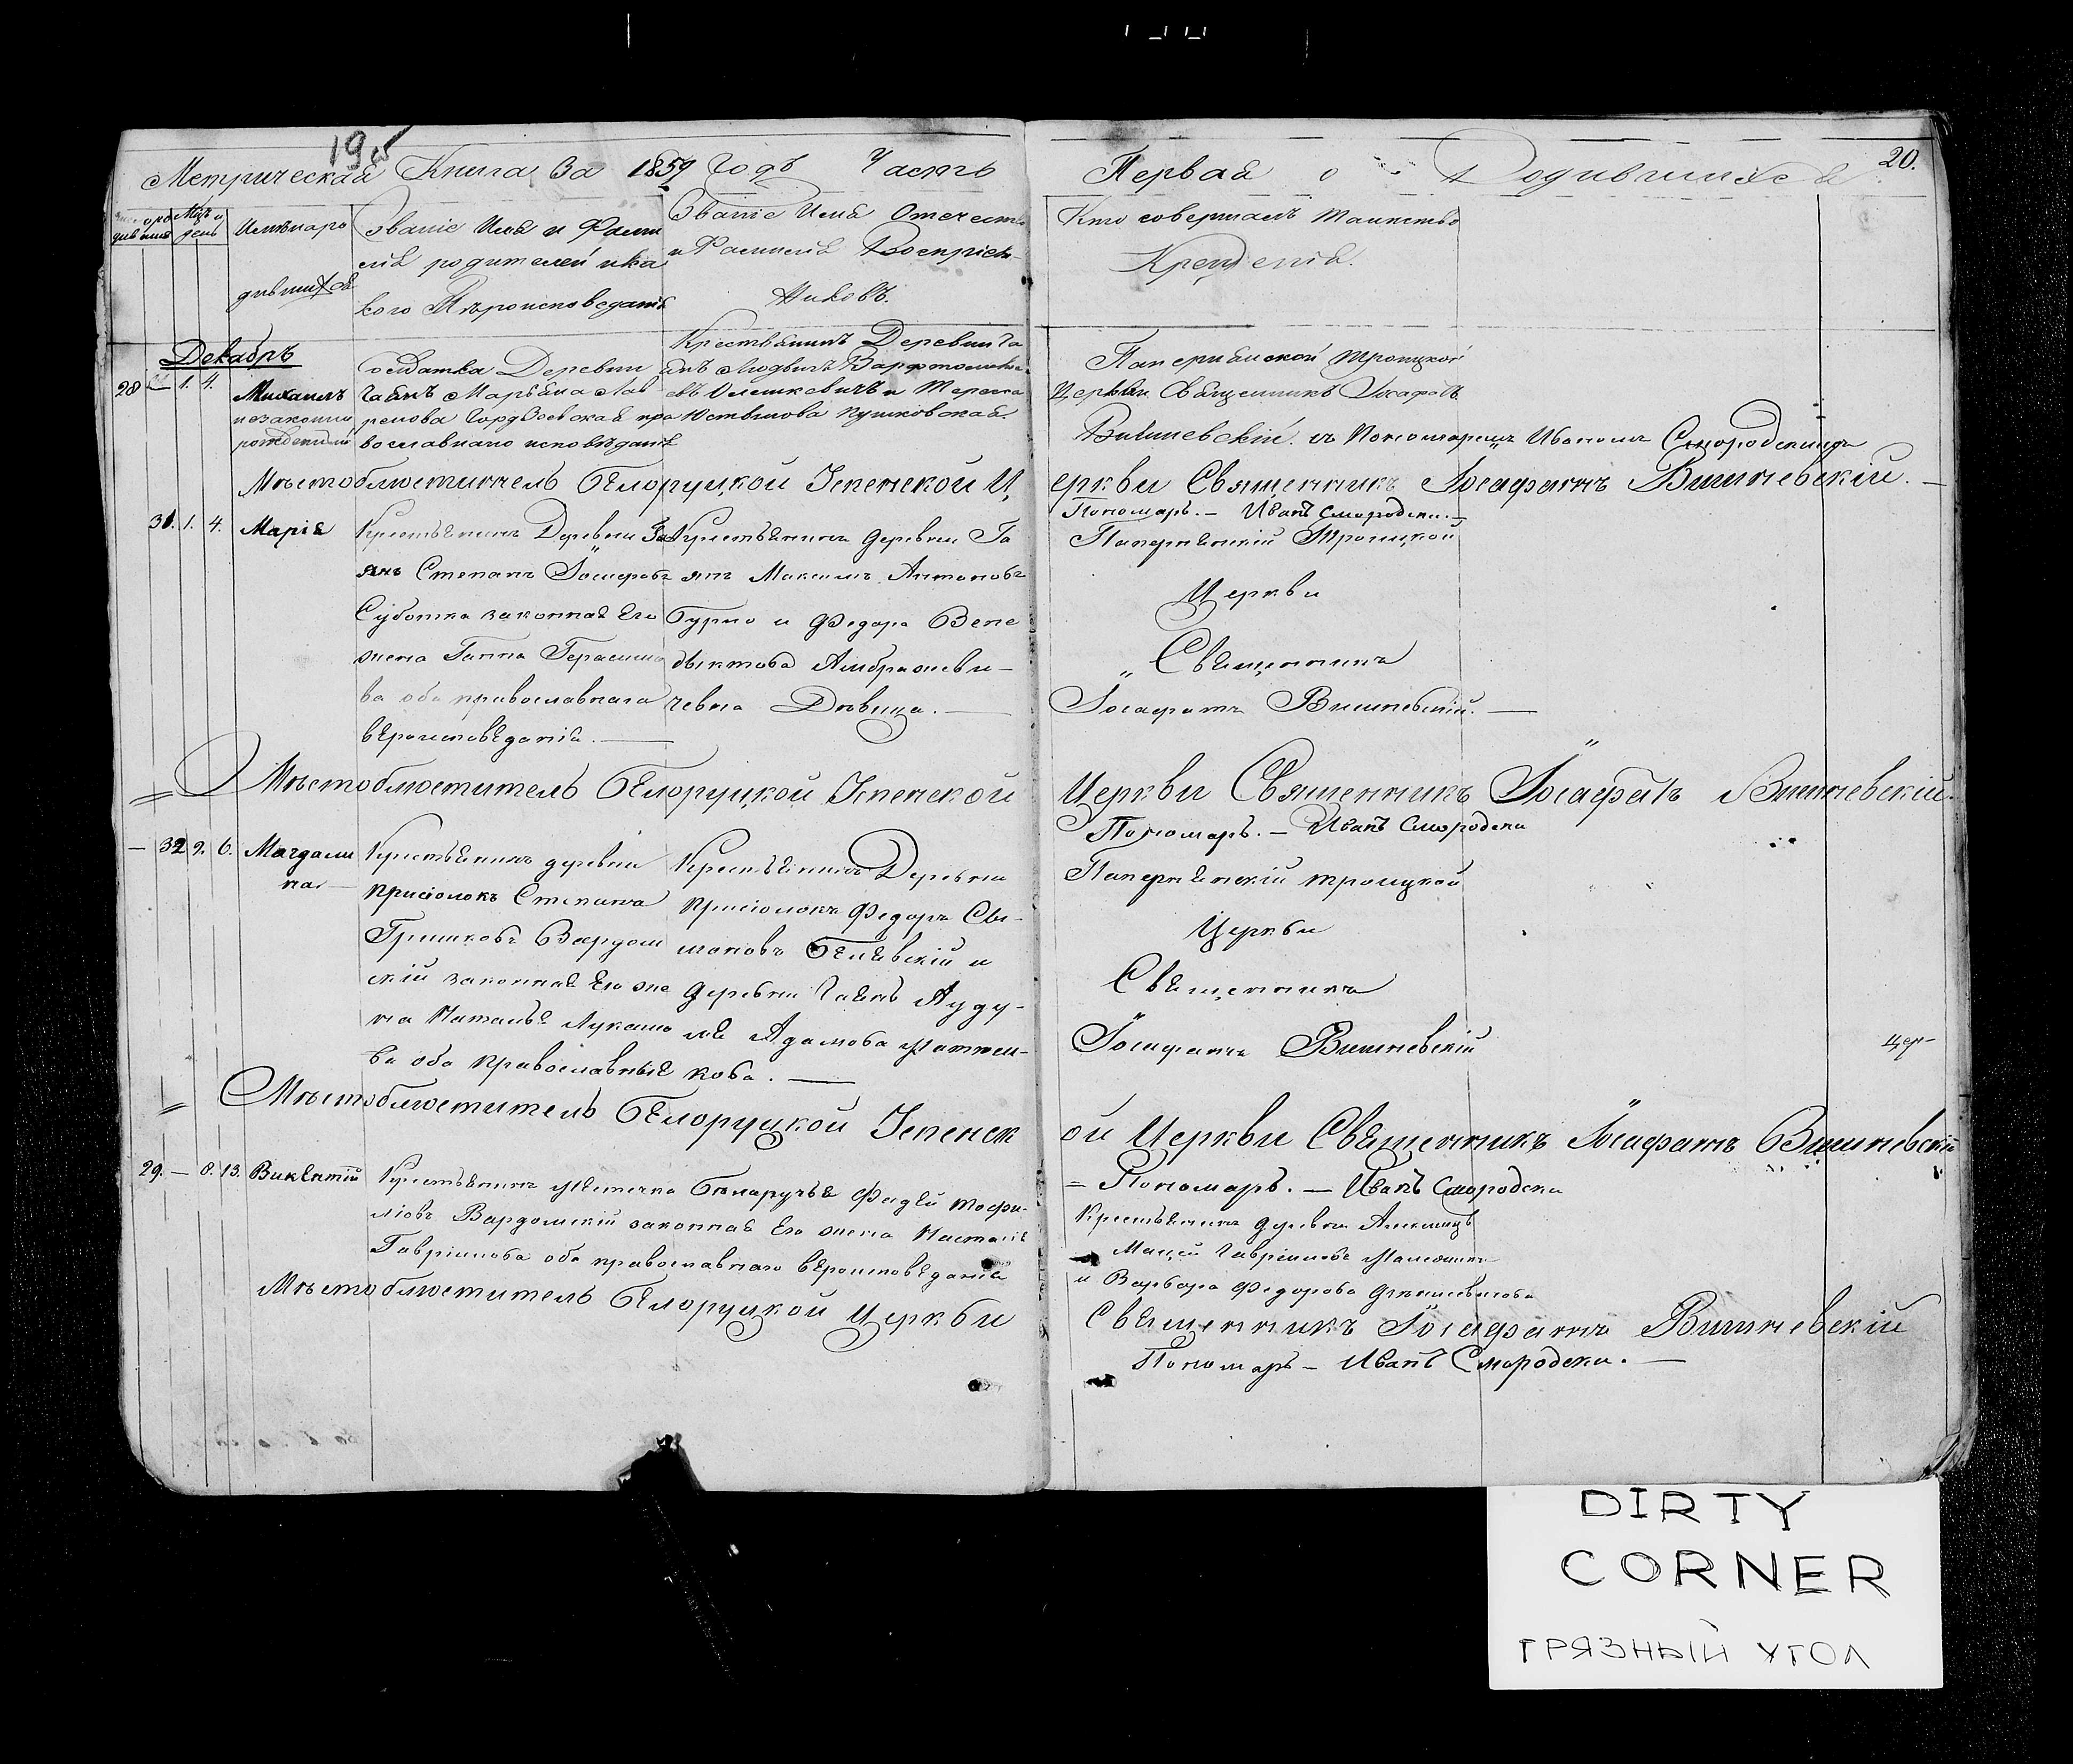 19 об
20.
Метрическая Книга За 1859 Годъ Часть Первая о Родившихся
Мцъ и день
Имѣнаро
дившихся
Званіе Имя и Фами
лія родителей ика
кого Вѣроисповеданія
Званіе Имя Отечество
и Фамилія Воспріем-
никовъ.
Кто совершалъ таинство
Крещенія.
Декабрь
28 1. 4.
Михаилъ
незаконно
рожденный
Солдатка Деревни
Гаянъ Марьяна Лав
ренова Гордзіевская пра
вославнаго исповѣданія
Крестьянинъ Деревни Га
янъ Людвигъ Варфтоломее
въ Олешкевичъ и Тереса
Юстынова Пушковская.
Паперненской троицкой
Церкви Священникъ Іосафатъ
Вишневскій. съ Пономаремъ Иваномъ Смородскимъ
Мѣстоблюститель Бѣлоруцкой Успенской Церкви Священникъ Іосафатъ Вишневскій.
Пономарь. — Иванъ Смородски. —
31. 1. 4. Марія
Крестьянинъ Деревни Га
янъ Степанъ Іосифовъ
Суботка законная Его
жена Ганна Герасимо
ва оба православнаго
вѣроисповѣданія. —
Крестьянинъ деревни Га
янъ Максимъ Антоновъ
Бурто и Федора Вене
дыктова Амброжеви—
чевна Дѣвица. —
Папернянскій Троицкой
Церкви
Священникъ
Іосафатъ Вишневскій. —
Мѣстоблюститель Бѣлоруцкой Успенской Церкви Священникъ Іосафатъ Вишневскій.
Пономарь. — Иванъ Смородски
— 32 2. 6. Магдали
на. —
Крестьянинъ деревни
Присіолокъ Степанъ
Гришковъ Вардом
скій законная Его же
на Наталья Лукашо
ва оба православныя
Крестьянинъ Деревни
Присіолокъ Федоръ Си-
моновъ Бѣлявскій и
деревни Гаянъ Ауду-
ля Адамова
кова. —
Папернянскій троицкой
Церкви
Священникъ
Іосафатъ Вишневскій
цер-
Мѣстоблюститель Бѣлоруцкой Успенской Церкви Священникъ Іосафатъ Вишневскій
= Пономарь. — Иванъ Смородски
29. — 8. 13. Викѣнтій
Крестьянинъ Мѣстечка Бѣларучья Фадѣй Теофи-
ліовъ Вардомскій законная Его жена Настасія
Гавріилова оба православнаго вѣроисповѣданія
Крестьянинъ деревни
Мацей Гавріиловъ
и Варвара Федорова
Мѣстоблюститель Бѣлоруцкой Церкви Священникъ Іосафатъ Вишневскій
Пономарь — Иванъ Смородски. —
DIRTY
CORNER
ГРЯЗНЫЙ УГОЛ